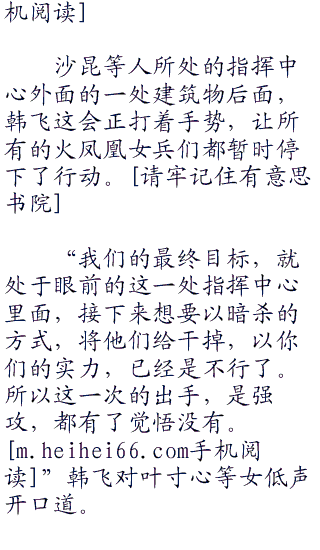 机阅读]
沙昆等人所处的指挥中
心外面的一处建筑物后面，
韩飞这会正打着手势，让所
有的火凤凰女兵们都暂时停
下了行动。[请牢记住有意思
书院]
“我们的最终目标，就
处于眼前的这一处指挥中心
里面，接下来想要以暗杀的
方式，将他们给干掉，以你
们的实力，已经是不行了。
所以这一次的出手，是强
攻，都有了觉悟没有。
[m.heihei66.com手机阅
读]”韩飞对叶寸心等女低声
开口道。